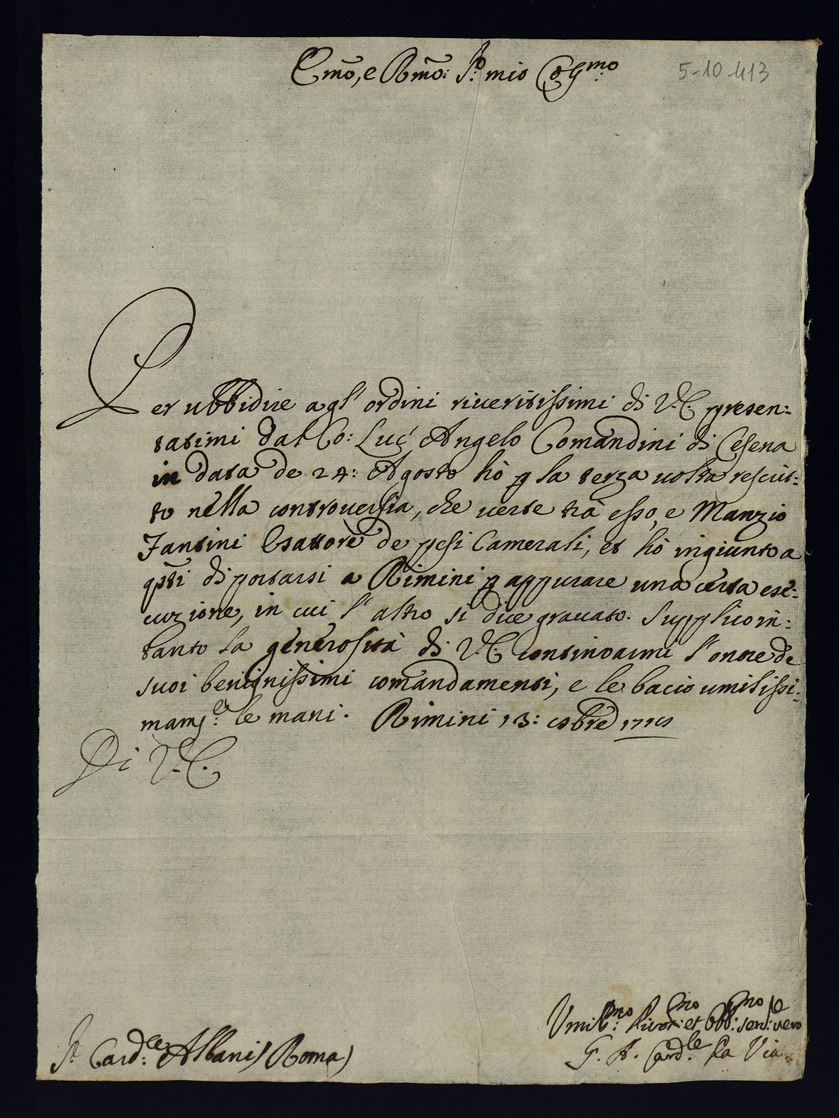 Emo, e Rmo: Sr: mio Ossmo:
5-10-413
Per ubbidire agl' ordini riveritissimi di V.E. presen-
tatimi dal Co: Angelo Comandini di Cesena
in data de 24: Agosto hò p la terza volta rescrit-
to nella controversia, che verte trà esso, e Manzio
Fantini Esattore de pesi Camerali, et hò ingiunto a
qsti di portarsi a Rimini p appurare una certa ese-
cuzione, in cui l' altro si dice gravato. Supplico in-
tanto la generosità di V.E. continoarmi l' onore de
suoi benignissimi comandamenti, e le bacio umilissi-
mamte: le mani. Rimini 13:
Di V.E.
Sr: Cardle: Albani (Roma)
Umilmo: Divotmo: et Obbmo: servre: vero
G. A. Cardle: Da Via